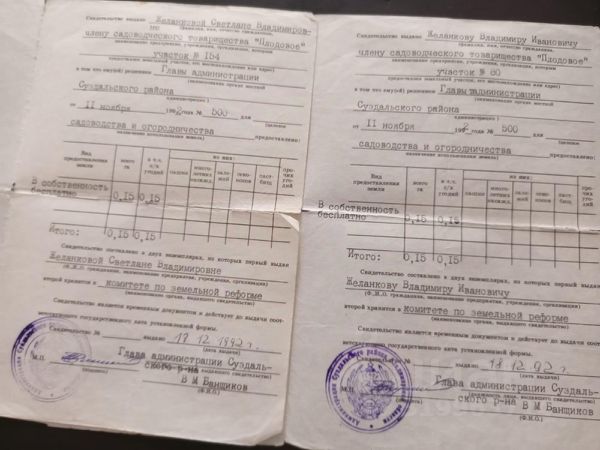 Свидетельство выдано Желанковой Светлане Владимиров-
не (фамилия, имя, отчество гражданина,
члену садоводческого товарищества "Плодовое"
наименование предприятия, учреждения, организации,
участок № 154
предоставления земельный участок, его местонахождение или адрес)
в том что ему(ей) решением Главы администрации
(наименование органа местной
Суздальского района
администрации)
от 11 ноября 1992 года № 500 для
(целевое
садоводства и огородничества предоставлено:
наименование использования земель)
Вид предоставления земли
всего га
в т.ч. с/х угодий
из них:
пашни
много-летних насажд.
зале-жей
сено-косов
паст-бищ
про-чих уго-дий
В собственность бесплатно 0,15 0,15
Итого: 0,15 0,15
Свидетельство составлено в двух экземплярах, из которых первый выдан
Желанковой Светлане Владимировне
(Ф.И.О. гражданина, наименование предприятия, учреждения, организации)
второй хранится в комитете по земельной реформе
(наименование органа, выдавшего свидетельство)
Свидетельство является временным документом и действует до выдачи соот-
ветствующего государственного акта установленной формы.
Свидетельство № выдано 18.12.1992 г.
(дата выдачи)
М.П.
Глава администрации Суздаль-
ского р-на
В М Банщиков
(Ф.И.О.)
Свидетельство выдано Желанкову Владимиру Ивановичу
(фамилия, имя, отчество гражданина,
члену садоводческого товарищества "Плодовое"
наименование предприятия, учреждения, организации, которым
участок № 60
предоставлен земельный участок, его местонахождение или адрес)
в том что ему(ей) решением Главы администрации
(наименование органа местной
Суздальского района
администрации)
от 11 ноября 1992 года № 500 для
(целевое
садоводства и огородничества предоставлено:
наименование использования земель)
Вид предоставления земли
всего га
в т.ч. с/х угодий
из них:
пашни
много-летних насажд.
зале-жей
сено-косов
паст-бищ
про-чих уго-дий
В собственность бесплатно 0,15 0,15
Итого: 0,15 0,15
Свидетельство составлено в двух экземплярах, из которых первый выдан
Желанкову Владимиру Ивановичу
(Ф.И.О. гражданина, наименование предприятия, учреждения, организации)
второй хранится в комитете по земельной реформе
(наименование органа, выдавшего свидетельство)
Свидетельство является временным документом и действует до выдачи соот-
ветствующего государственного акта установленной формы.
выдано 18.12.92 г
(дата выдачи)
М.П.
Глава администрации Суздаль-
ского р-на В М Банщиков
(Ф.И.О.)